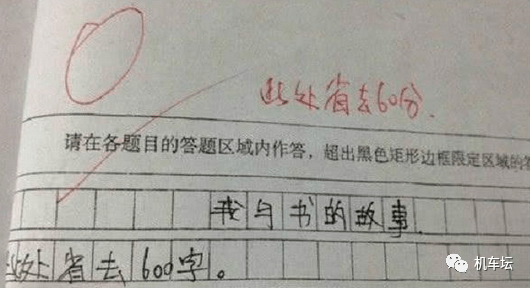 此处省去60分.
请在各题目的答题区域内作答，超出黑色矩形边框限定区域的答
我与书的故事
此处省去600字。
机车坛